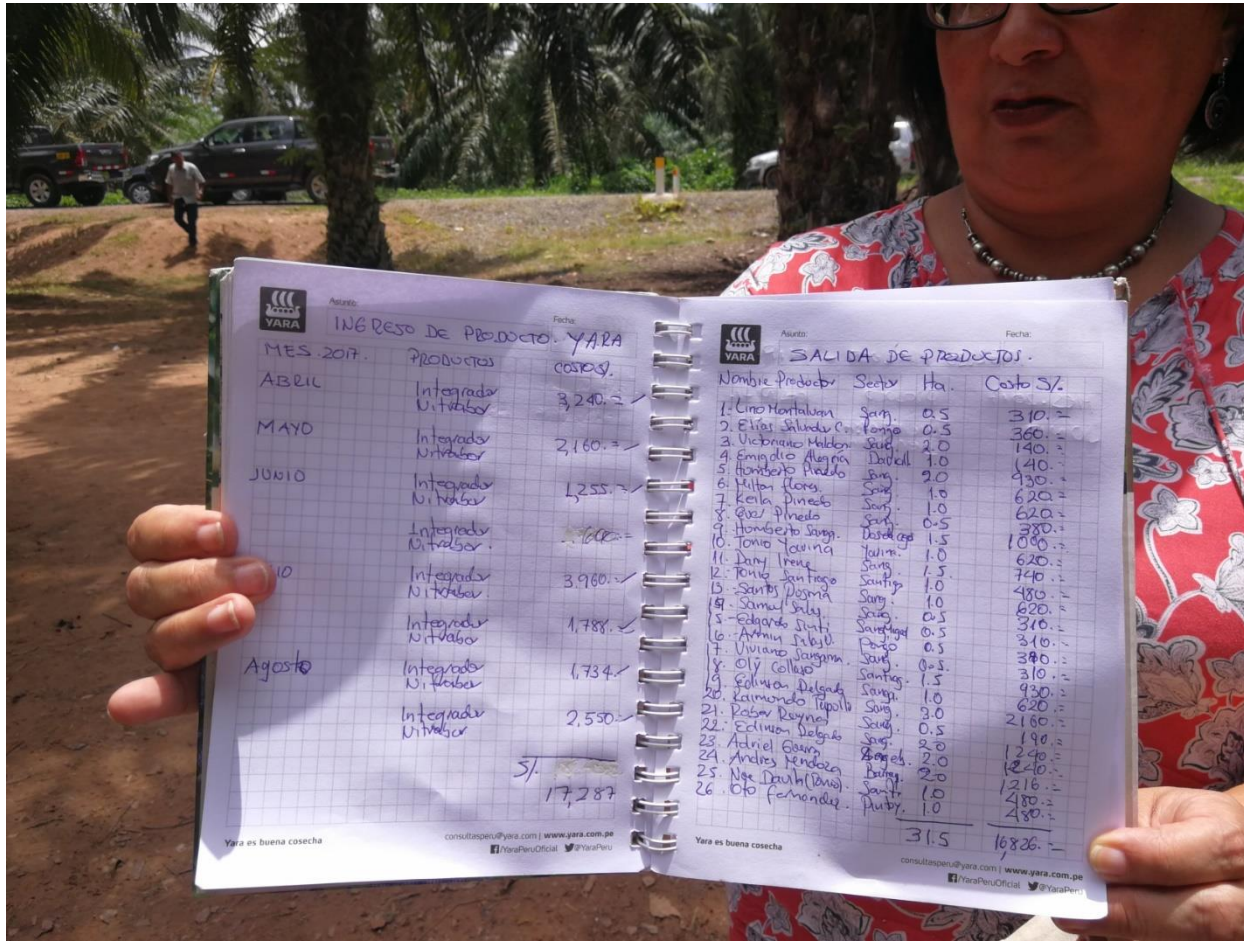 YARA
Asunto:
Fecha:
INGRESO DE PRODUCTO. YARA
MES.2017. PRODUCTOS COSTO S/.
ABRIL Integrador 3,240.=
Nitrabor
MAYO Integrador 2,160.=
Nitrabor
JUNIO Integrador 1,255.=
Nitrabor
Integrador
Nitrabor.
Integrador 3.960.=
Nitrabor
Integrador 1,788.=
Nitrabor
Agosto Integrador 1,734
Nitrabor
Integrador 2,550.=
Nitrabor
S/.
17,287
Yara es buena cosecha
consultasperu@yara.com | www.yara.com.pe
/YaraPeruOficial @YaraPeru
YARA
Asunto:
Fecha:
SALIDA DE PRODUCTOS.
Nombre Productor Sector Ha. Costo S/.
1. Lino Montalvan Sang. 0.5 310.=
2. Elías Salvador C. Pongo 0.5 360.=
3. Victoriano Maldon Sang. 2.0 140.=
4. Emigdio Alegria David 1.0 140.=
5. Humberto Pinedo Sang. 2.0 930.=
6. Milton flores. Sang. 1.0 620=
7. Keila Pinedo Sang. 1.0 620.=
8. Pinedo Sang. 0.5 380.=
9. Homberto Sang. 1.5
10. Tonio Yavina Yavin. 1.0 620.=
11. Dany Irene Sang. 1.5 740.=
12. Tonio Santiago Santiago 1.0 480.=
13. Santos Sang. 1.0 620.=
14. Samuel Salas Sang. 0.5 310.=
15. Edgardo Sinti SanMiguel 0.5 310.=
16. Armin Pongo 0.5
17. Viviano Sangama Sang. 0.5 310.=
18. Oly Collazo Santiag. 1.5 930.=
19. Edinson Delgado Sanga. 1.0 620.=
20. Raimondo Sang. 3.0 2160.=
21. Rober Reyna Sang. 0.5 190.=
22. Edinson Delgado Sang. 2.0 1240.=
23. Adriel 2.0 1240.=
24. Andres Mendoza 2.0 1216.=
25. Davila 1.0 480.=
26. Oto fernandez. 1.0 480.=
31.5 16826.=
Yara es buena cosecha
consultasperu@yara.com | www.yara.com.pe
/YaraPeruOficial @YaraPeru